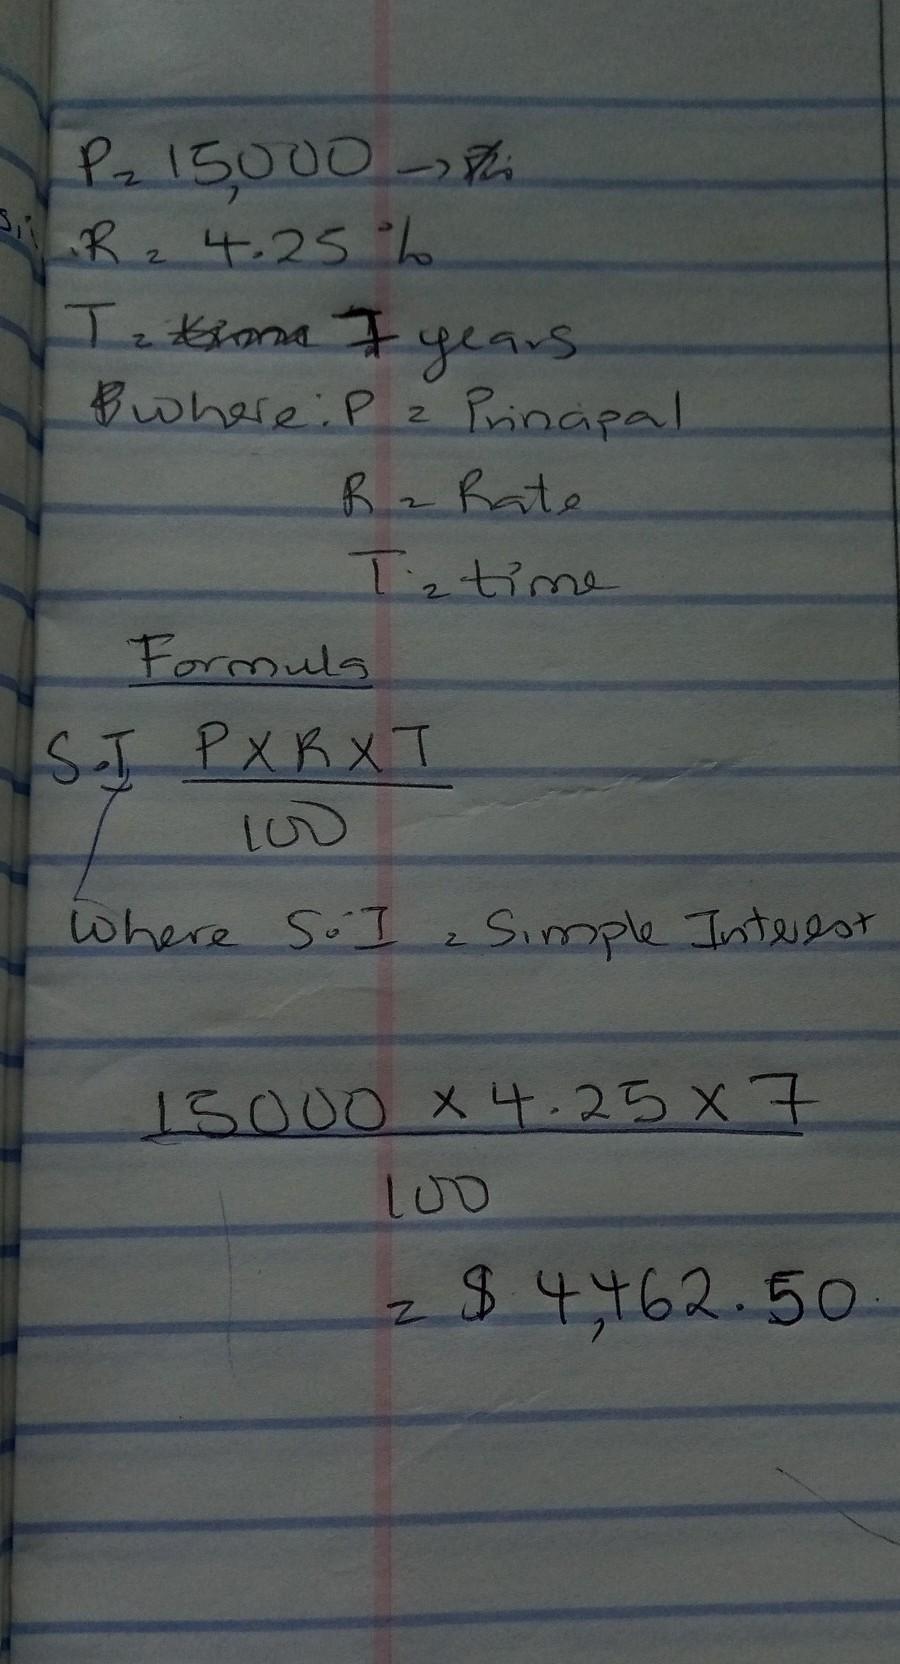 P = 15,000 →
R = 4.25 %
T = 7 years
where: P = Principal
R = Rate
T = time
Formula
S.I P X R X T
100
Where S.I = Simple Interest
15000 x 4.25 x 7
100
= $ 4,462.50